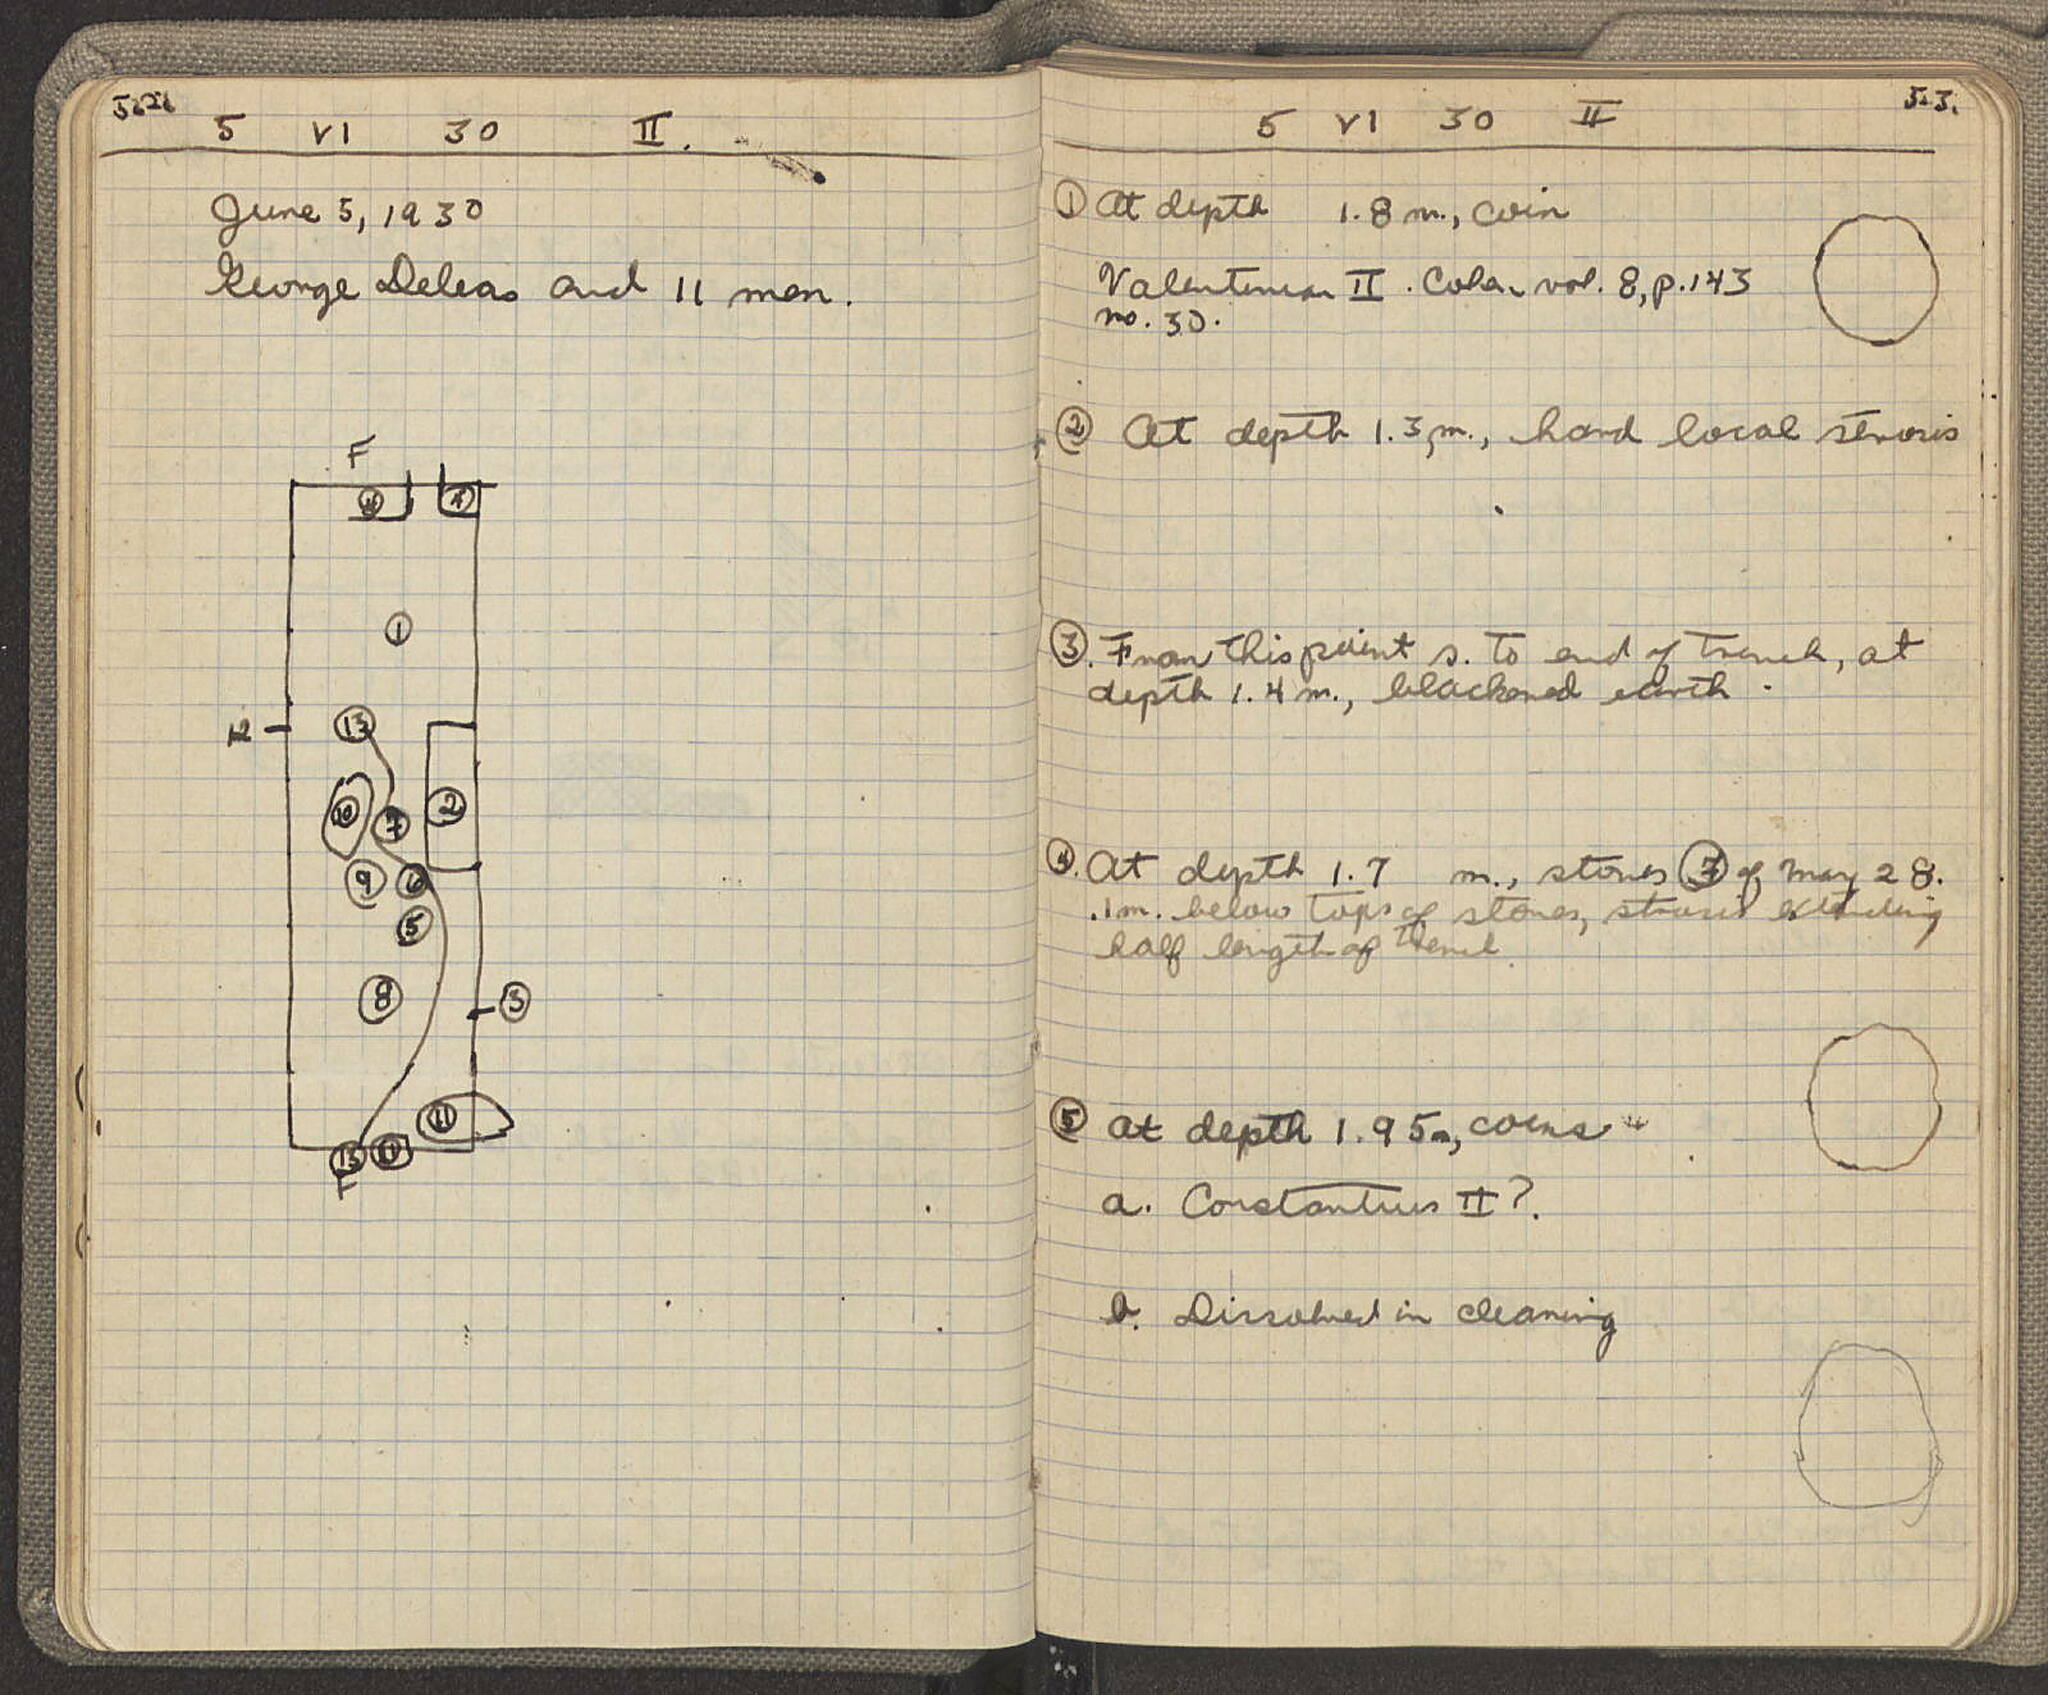 522
5 VI 30 II.
June 5, 1930
George Deleas and 11 men.
F
4 4
1
12 13
10 7 2
9 6
5
8 3
11
13
F
523.
5 VI 30 II
1 At depth 1.8 m., coin
Valentinian II. Cohen vol. 8, p. 143
no. 30.
2 At depth 1.3 m., hard local strosis
3. From this point s. to end of trench, at
depth 1.4 m., blackened earth.
4. At depth 1.7 m., stones 7 of May 28.
.1m. below tops of stones, strosis extending
half length of trench.
5 At depth 1.95 m, coins
a. Constantius II?.
b. Dissolved in cleaning